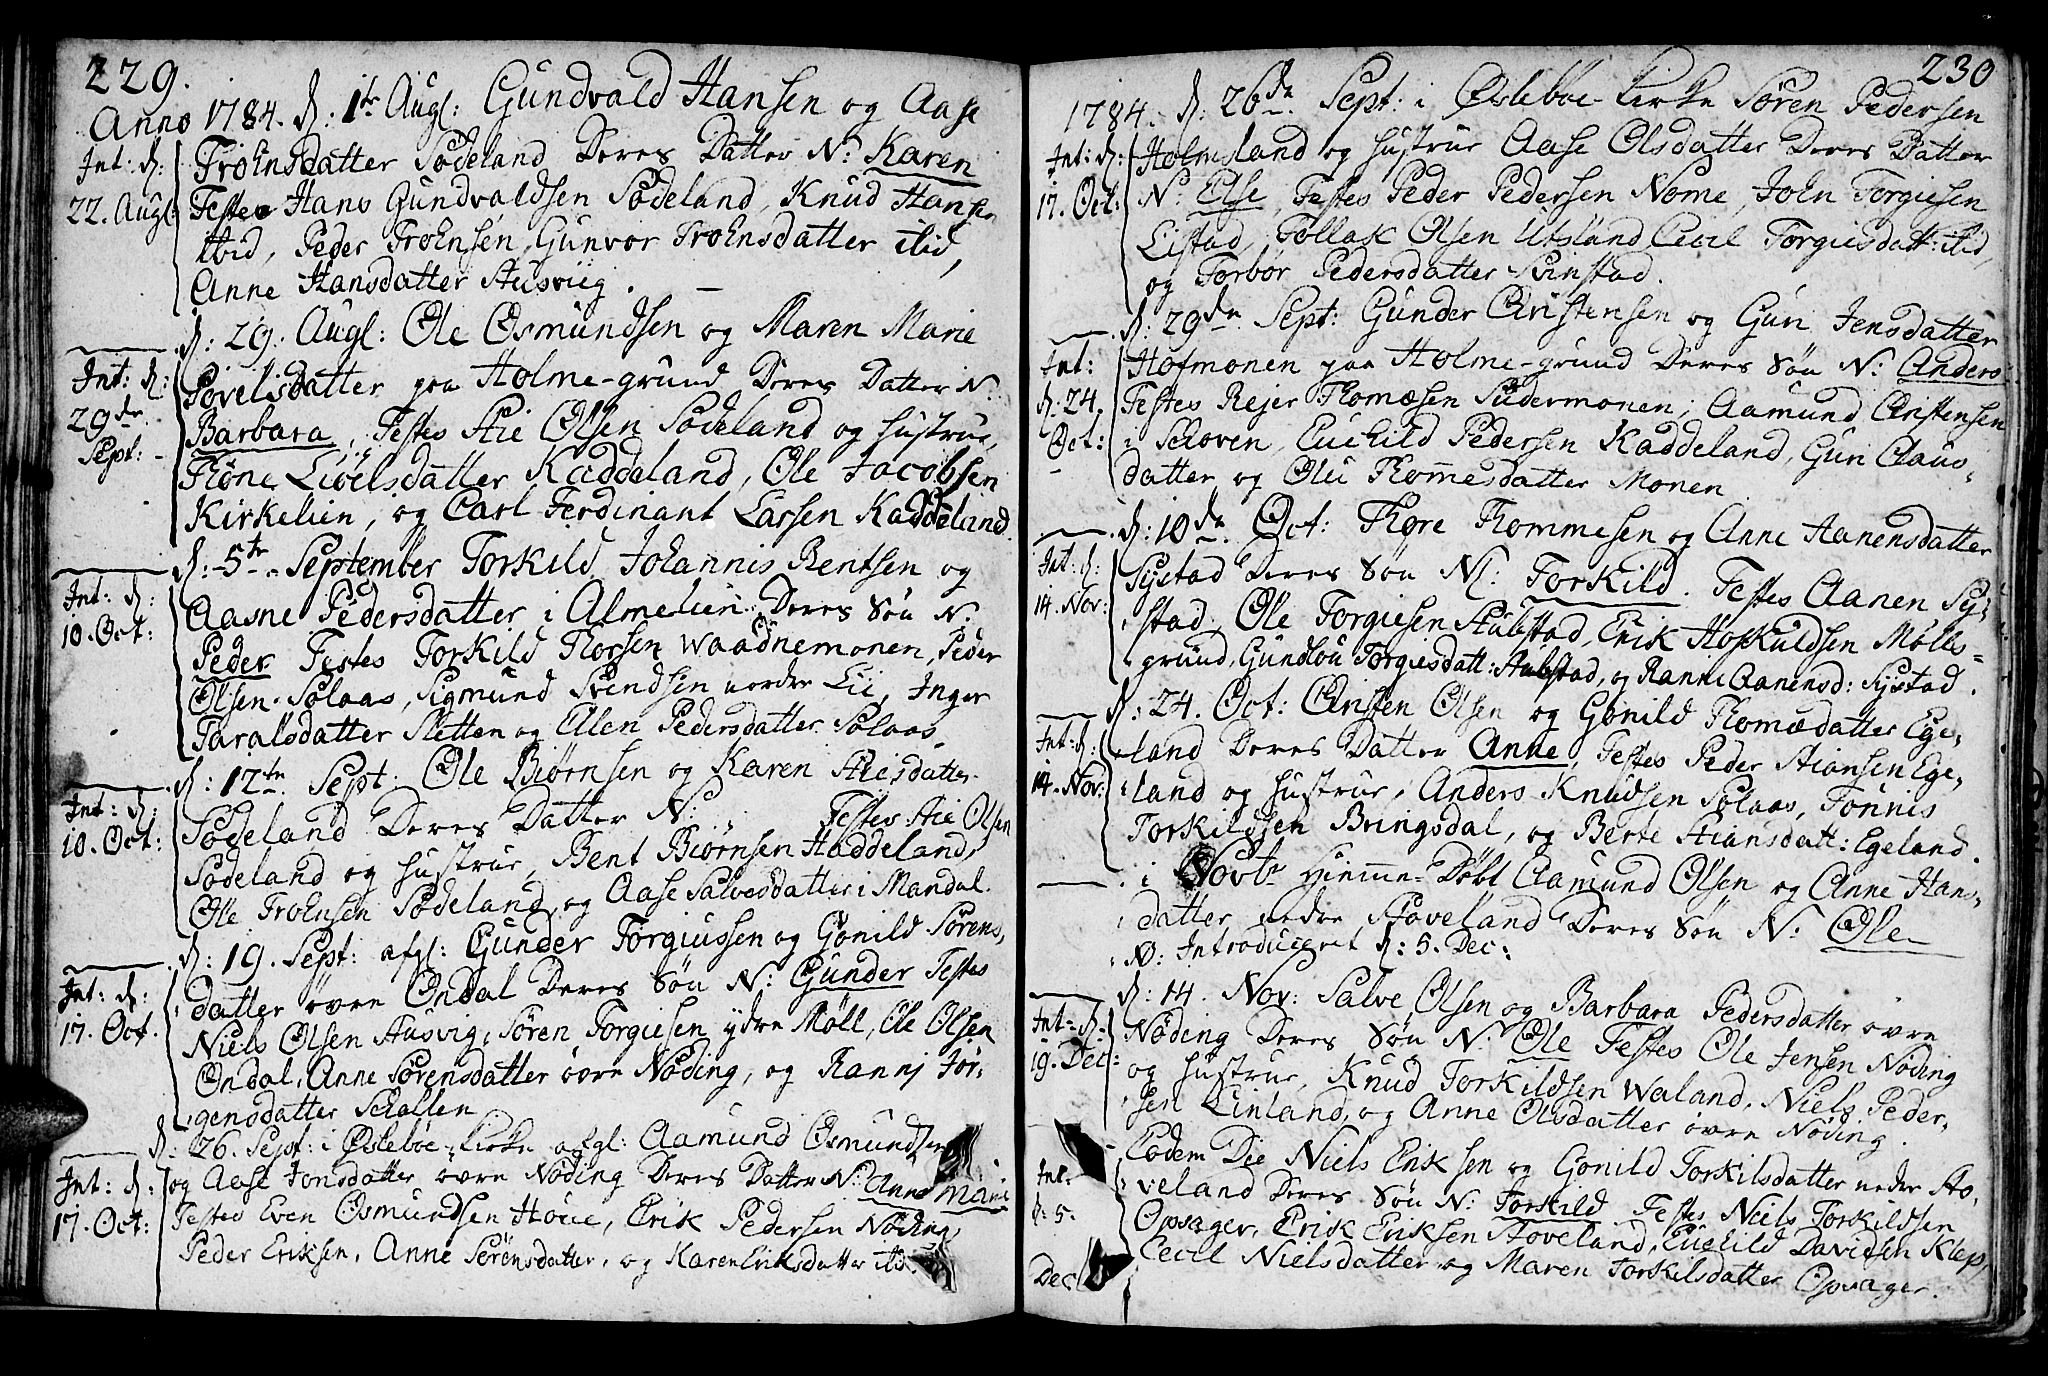 229.
Anno 1784. d: 1te Augl: Gundvald Hansen og Aase
Int: d: Trohnsdatter Sødeland Deres Datter N: Karen
22. Augl: Testes Hans Gundvaldsen Sødeland, Knud Hansen
ibid, Peder Trohnsen, Gunvor Trohnsdatter ibid,
Anne Hansdatter Ausviig.
d: 29. Augl: Ole Osmundsen og Maren Marie
Int: d: Povelsdatter paa Holme-grund Deres Datter N:
29de Barbara, Testes Aie Olsen Sødeland og Hustrue,
Sept: Thone Liøelsdatter Kaddeland, Ole Jacobsen
Kirkelien, og Carl Ferdinant Larsen Kaddeland.
d: 5te September Torkild Johannis Bentsen og
Int: d: Aasne Pedersdatter i Almelien Deres Søn N:
10. Oct: Peder Testes Torkild Thorsen Waadnemonen, Peder
Olsen Solaas, Sigmund Svendsen nordre Lii, Inger
Taralsdatter Sletten og Elen Pedersdatter Solaas.
d: 12te Sept: Ole Biørnsen og Karen Aiesdatter
Int: d: Sødeland Deres Datter N: Testes Aie Olsen
10. Oct: Sødeland og Hustrue, Bent Biørnsen Haddeland,
Ole Trohnsen Sødeland, og Aase Salvesdatter i Mandal.
d: 19. Sept: afgl: Gunder Torgiussen og Gonild Sørens,
Int: d: datter øvre Øndal Deres Søn N: Gunder Testes
17. Oct. Niels Olsen Ausvig, Søren Torgiesen ydre Møll, Ole Olsen
Øndal, Anne Sørensdatter øvre Nøding, og Rannj Jør,
gensdatter Schallen
d: 26. Sept: i Øsleboe-Kirke afgl: Aamund Osmundsen
Int: d: og Aase Jonsdatter øvre Nøding Deres Datter N: Anne Marie
17. Oct: Testes Even Osmundsen Houe, Erik Pedersen Nøding,
Peder Eriksen, Anne Sørensdatter, og Karen Eriksdatter ibid.
230
1784. d: 26de Sept: i Øsleboe-Kirke Søren Pedersen
Int: d: Holmesland og Hustrue Aase Olsdatter Deres Datter
17. Oct: N: Else, Testes Peder Pedersen Nome, John Torgiesen
Listad, Tollak Olsen Utsland, Cecil Torgiesdatt: ibid,
og Torbør Pedersdatter Svinstad.
d: 29de Sept: Gunder Christensen og Guri Jensdatter
Int: Hofmonen paa Holme-grund Deres Søn N: Anders
d: 24. Testes Rejer Thomæsen Sødermonen, Aamund Christensen
Oct: i Schoven, Euchild Pedersen Kaddeland, Guri Claus-
datter og Olu Thomesdatter Monen
d: 10de Oct: Thore Thommesen og Anne Aanensdatter
Int: d: Systad Deres Søn N: Torkild. Testes Aanen Sy-
14. Nov: stad, Ole Torgiesen Aubstad, Erik Hofkuldsen Mølle-
grund, Gundlou Torgiesdatt: Aubstad, og Ranni Aanensd: Systad.
d: 24. Oct: Christen Olsen og Gonild Thomædatter Ege,
Int: d: land Deres Datter Anne, Testes Peder Stiansen Ege,
14. Nov: land og Hustrue, Anders Knudsen Solaas, Tønnis
Torkildsen Bringsdal, og Berte Stiansdatt: Egeland.
i Novbr Hiemme-Døbt Aamund Olsen og Anne Hans,
datter nedre Støveland Deres Søn N: Ole
N: Introduceret d: 5. Dec:
d: 14. Nov: Salve Olsen og Barbara Pedersdatter øvre
Int: d: Nøding Deres Søn N: Ole Testes Ole Jensen Nøding
19. Dec: og Hustrue, Knud Torkildsen Weland, Niels Peder,
sen Linland, og Anne Olsdatter øvre Nøding.
Eodem Die Niels Eriksen og Gonild Torkilsdatter nedre Sto,
Int: veland Deres Søn N: Torkild. Testes Niels Torkildsen
d: 5. Opsager, Erik Eriksen Stoveland, Euchild Davidsen Klep,
Dec: Cecil Nielsdatter og Maren Torkilsdatter Opsager.